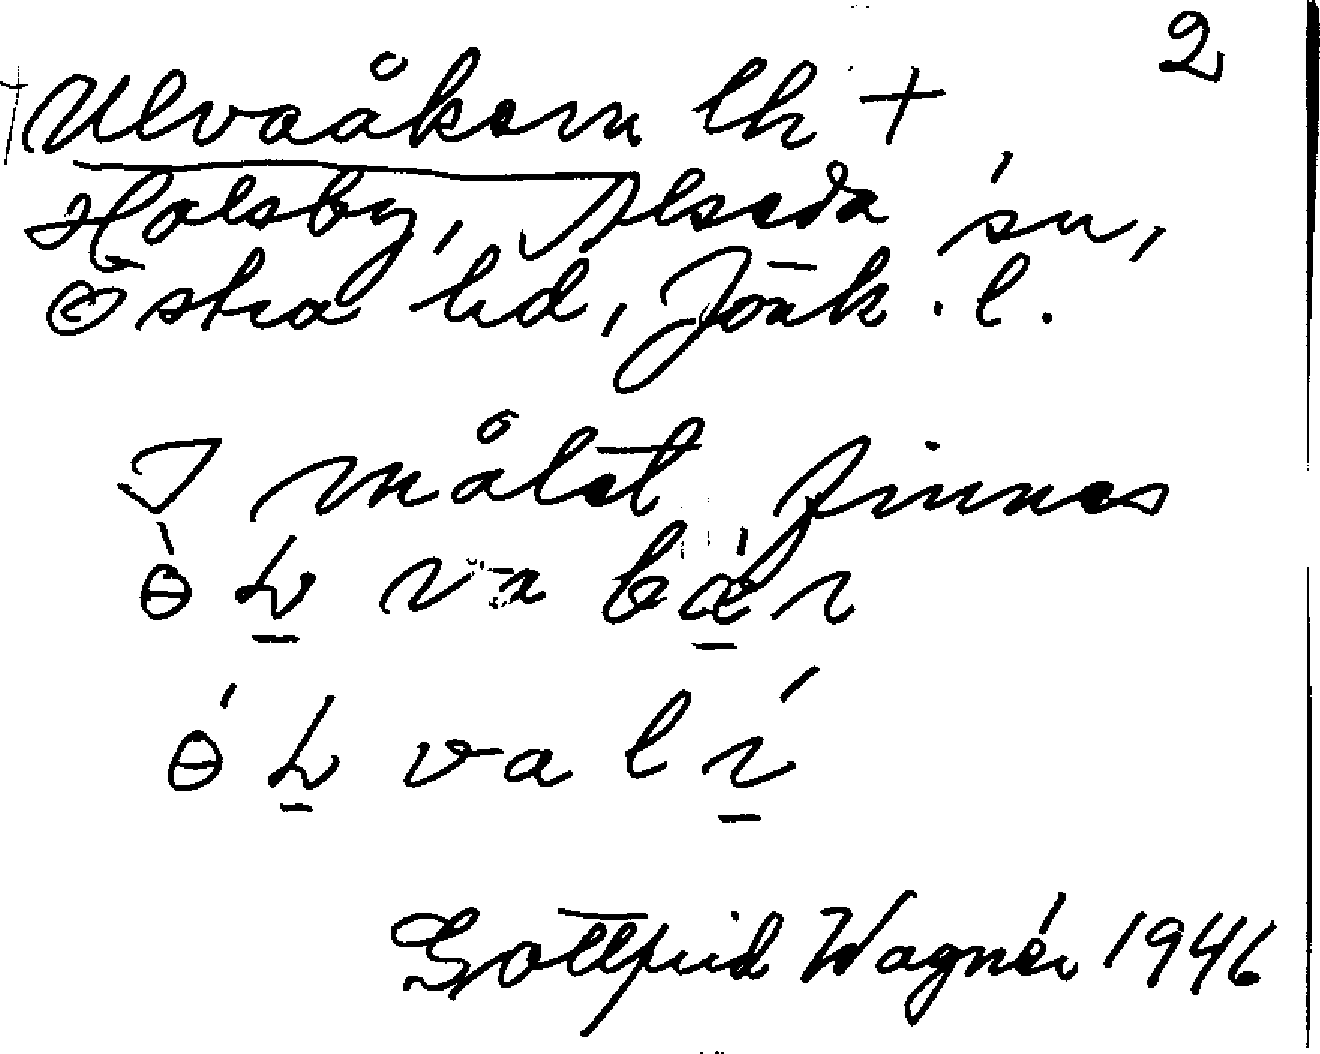 2
Ulvaåkern lh +
Holsby, Alseda sn,
Östra hd, Jönk. l.
I målet finnes
Gottfrid Wagnér 1946